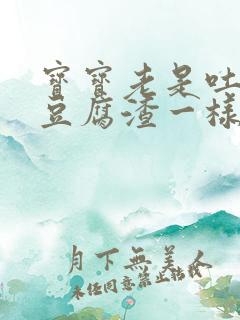 寶寶老是吐
豆腐渣一樣
月下無美人
未經同意禁止轉載